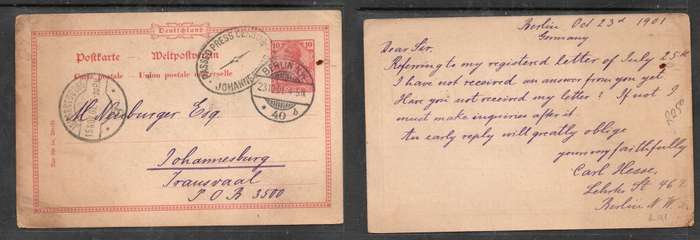 Deutschland
Postkarte Weltpostverein
Carte postale Union postale universelle
10 10
PASSED PRESS CENSOR
JOHANN
BERLIN
23.10.01. 4-5N
40 d
M. Neuburger Esq.
Johannesburg
Transvaal
P O B 3500
Berlin Oct 23d 1901
Germany
Dear Sir.
Referring to my registered letter of July 25th
I have not received an answer from you yet.
Have you not received my letter? If not I
must make inquiries after it.
An early reply will greatly oblige
yours very faithfully
Carl Hesse,
St 46
Berlin N W